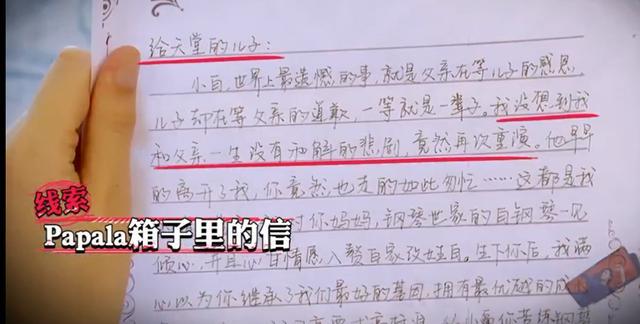 给天堂的儿子:
小白,世界上最遗憾的事,就是父亲在等儿子的感恩,
儿子却在等父亲的道歉,一等就是一辈子。我没想到我
和父亲一生没有和解的悲剧,竟然再次重演。他早早
的离开了我,你竟然也走的如此匆忙……这都是我
线索
对你妈妈,钢琴世家的白钢琴一见
Papala箱子里的信
倾心,并且心甘情愿入赘白家改姓白。生下你后,我满
心以为你继承了我们最好的基因,拥有最优越的成